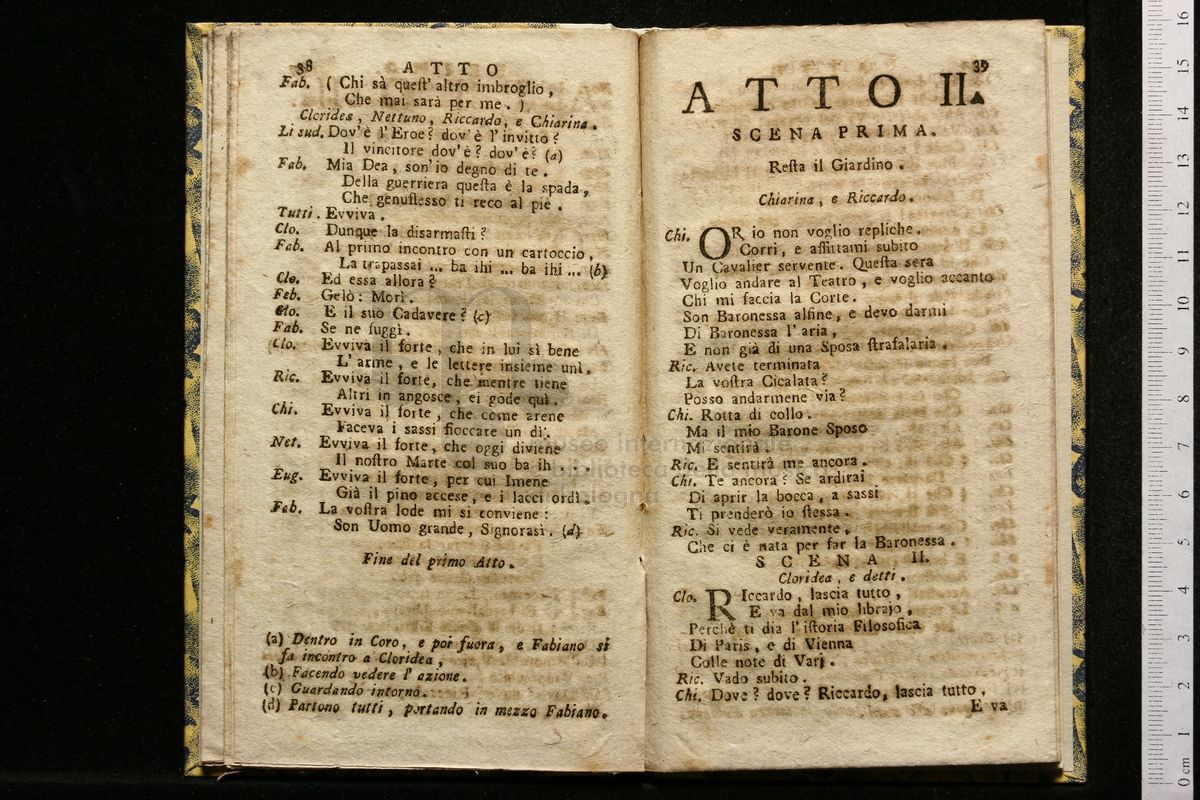 38 ATTO
Fab. ( Chi sà quest' altro imbroglio ,
Che mai sarà per me . )
Cloridea , Nettuno , Riccardo, e Chiarina .
Li sud. Dov'è l'Eroe? dov'è l'invitto ?
Il vincitore dov'è ? dov'è? (a)
Fab. Mia Dea , son' io degno di te .
Della guerriera questa è la spada ,
Che genuflesso ti reco al piè .
Tutti . Evviva .
Clo. Dunque la disarmasti ?
Fab. Al primo incontro con un cartoccio ,
La trapassai ... ba ihi ... ba ihi ... (b)
Clo. Ed essa allora ?
Feb. Gelò : Morì .
Clo. E il suo Cadavere ? (c)
Fab. Se ne fuggì .
Clo. Evviva il forte , che in lui sì bene
L' arme , e le lettere insieme unì .
Ric. Evviva il forte, che mentre tiene
Altri in angosce , ei gode quì .
Chi. Evviva il forte , che come arene
Faceva i sassi fioccare un dì .
Net. Evviva il forte, che oggi diviene
Il nostro Marte col suo ba ih . . .
Eug. Evviva il forte , per cui Imene
Già il pino accese, e i lacci ordì .
Fab. La vostra lode mi si conviene :
Son Uomo grande , Signorasì . (d)
Fine del primo Atto .
(a) Dentro in Coro , e poi fuora , e Fabiano si
fa incontro a Cloridea ,
(b) Facendo vedere l' azione .
(c) Guardando intorno .
(d) Partono tutti , portando in mezzo Fabiano .
39
ATTO II.
SCENA PRIMA .
Resta il Giardino .
Chiarina , e Riccardo .
Chi. OR io non voglio repliche .
Corri , e affittami subito
Un Cavalier servente . Questa sera
Voglio andare al Teatro , e voglio accanto
Chi mi faccia la Corte .
Son Baronessa alfine , e devo darmi
Di Baronessa l' aria ,
E non già di una Sposa strafalaria .
Ric. Avete terminata
La vostra Cicalata ?
Posso andarmene via ?
Chi. Rotta di collo .
Ma il mio Barone Sposo
Mi sentirà .
Ric. E sentirà me ancora .
Chi. Te ancora ? Se ardirai
Di aprir la bocca , a sassi
Ti prenderò io stessa .
Ric. Si vede veramente ,
Che ci è nata per far la Baronessa .
SCENA II.
Cloridea , e detti .
Clo. RIccardo , lascia tutto ,
E va dal mio librajo ,
Perchè ti dia l' istoria Filosofica
Di Paris , e di Vienna
Colle note di Varj .
Ric. Vado subito .
Chi. Dove ? dove ? Riccardo, lascia tutto ,
E va
museo internazionale
biblioteca
bologna
0 cm 1 2 3 4 5 6 7 8 9 10 11 12 13 14 15 16